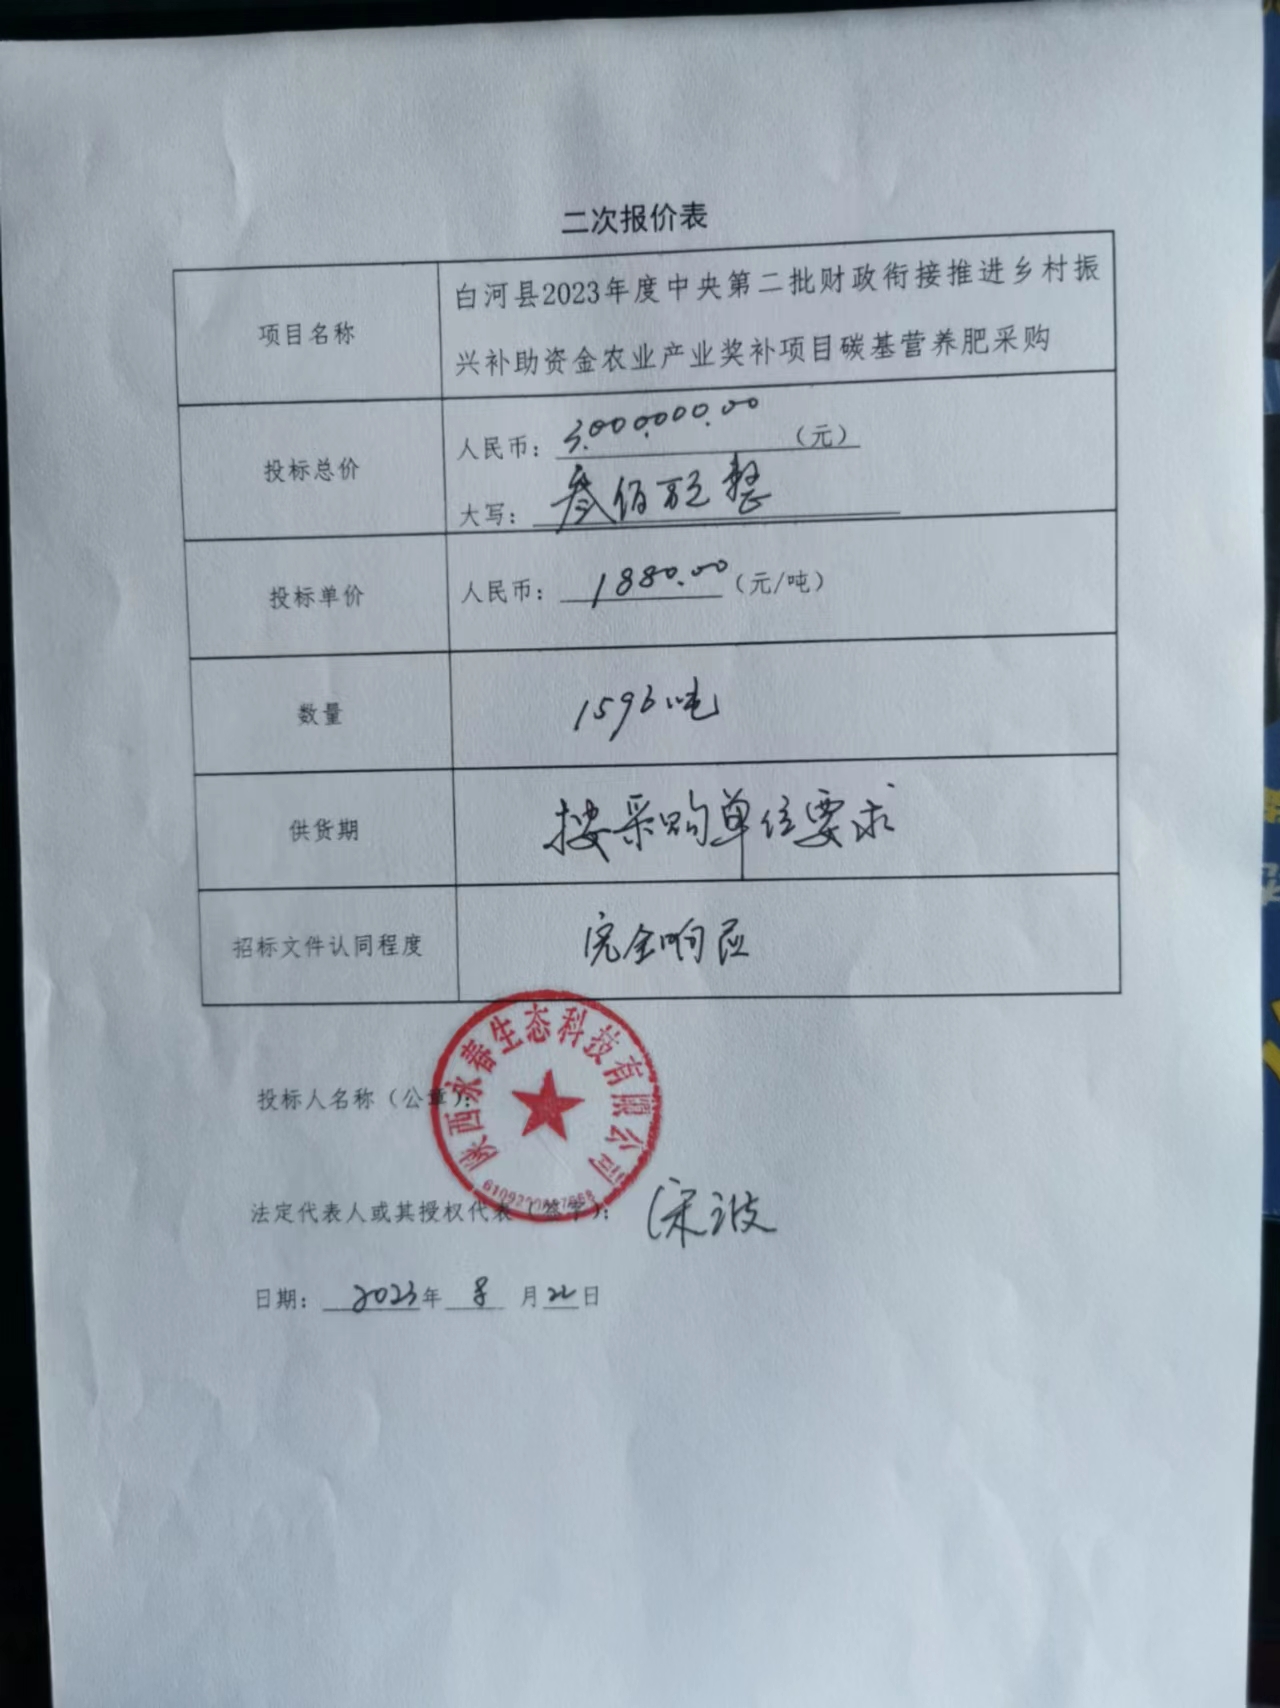 二次报价表
项目名称
白河县2023年度中央第二批财政衔接推进乡村振
兴补助资金农业产业奖补项目碳基营养肥采购
投标总价
人民币：3.000.000.00（元）
大写：叁佰万元整
投标单价
人民币：1880.00（元/吨）
数量
1596吨
供货期
按采购单位要求
招标文件认同程度
完全响应
投标人名称（公章）：
陕西永春生态科技有限公司
法定代表人或其授权代表（签字）：宋波
日期：2023年8月22日